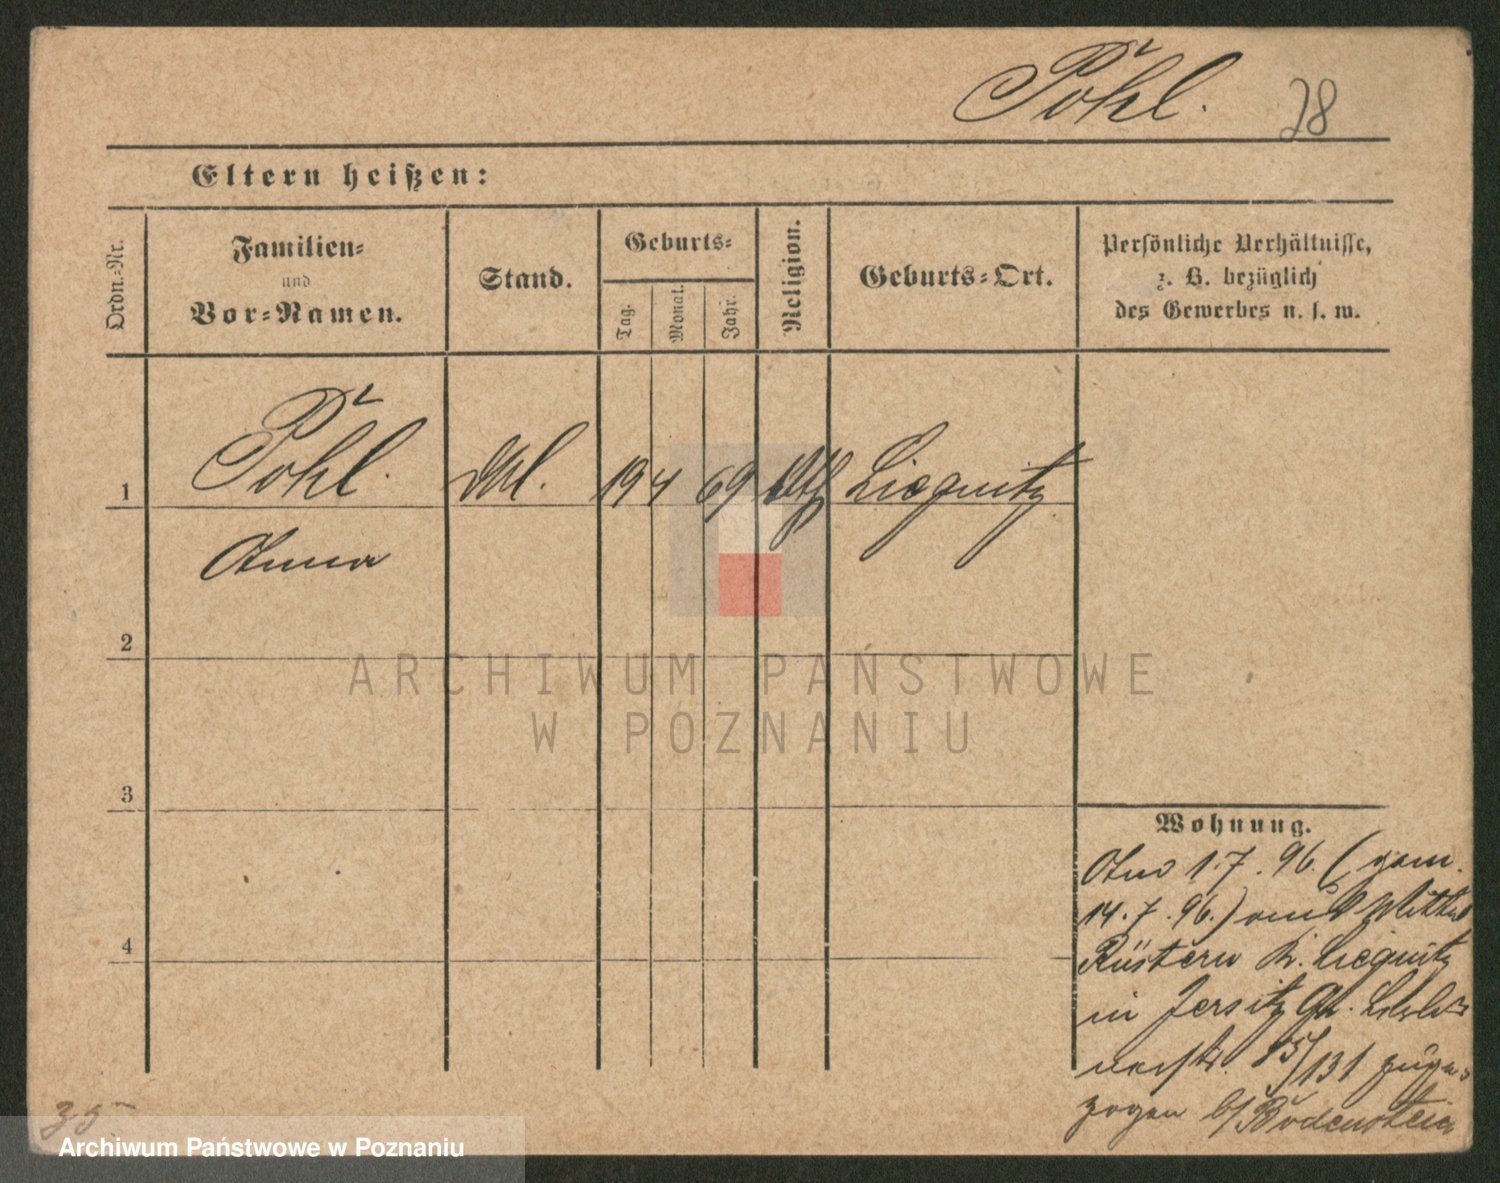 Pohl.
28
Eltern heißen:
Ordn.-Nr.
Familien-
und
Vor-Namen.
Stand.
Geburts-
Tag.
Monat.
Jahr.
Religion.
Geburts-Ort.
Persönliche Verhältnisse,
z. B. bezüglich
des Gewerbes u. s. w.
1
Pohl.
19 4 69
Liegnitz
Anna
2
ARCHIWUM PAŃSTWOWE
W POZNANIU
3
Wohnung.
1.7.96. (gem.
14.7.96.)
Rüstern Kr. Liegnitz
4
in Jersitz Gr.
15/131 zuge-
zogen b/Bodenstein
35
Archiwum Państwowe w Poznaniu